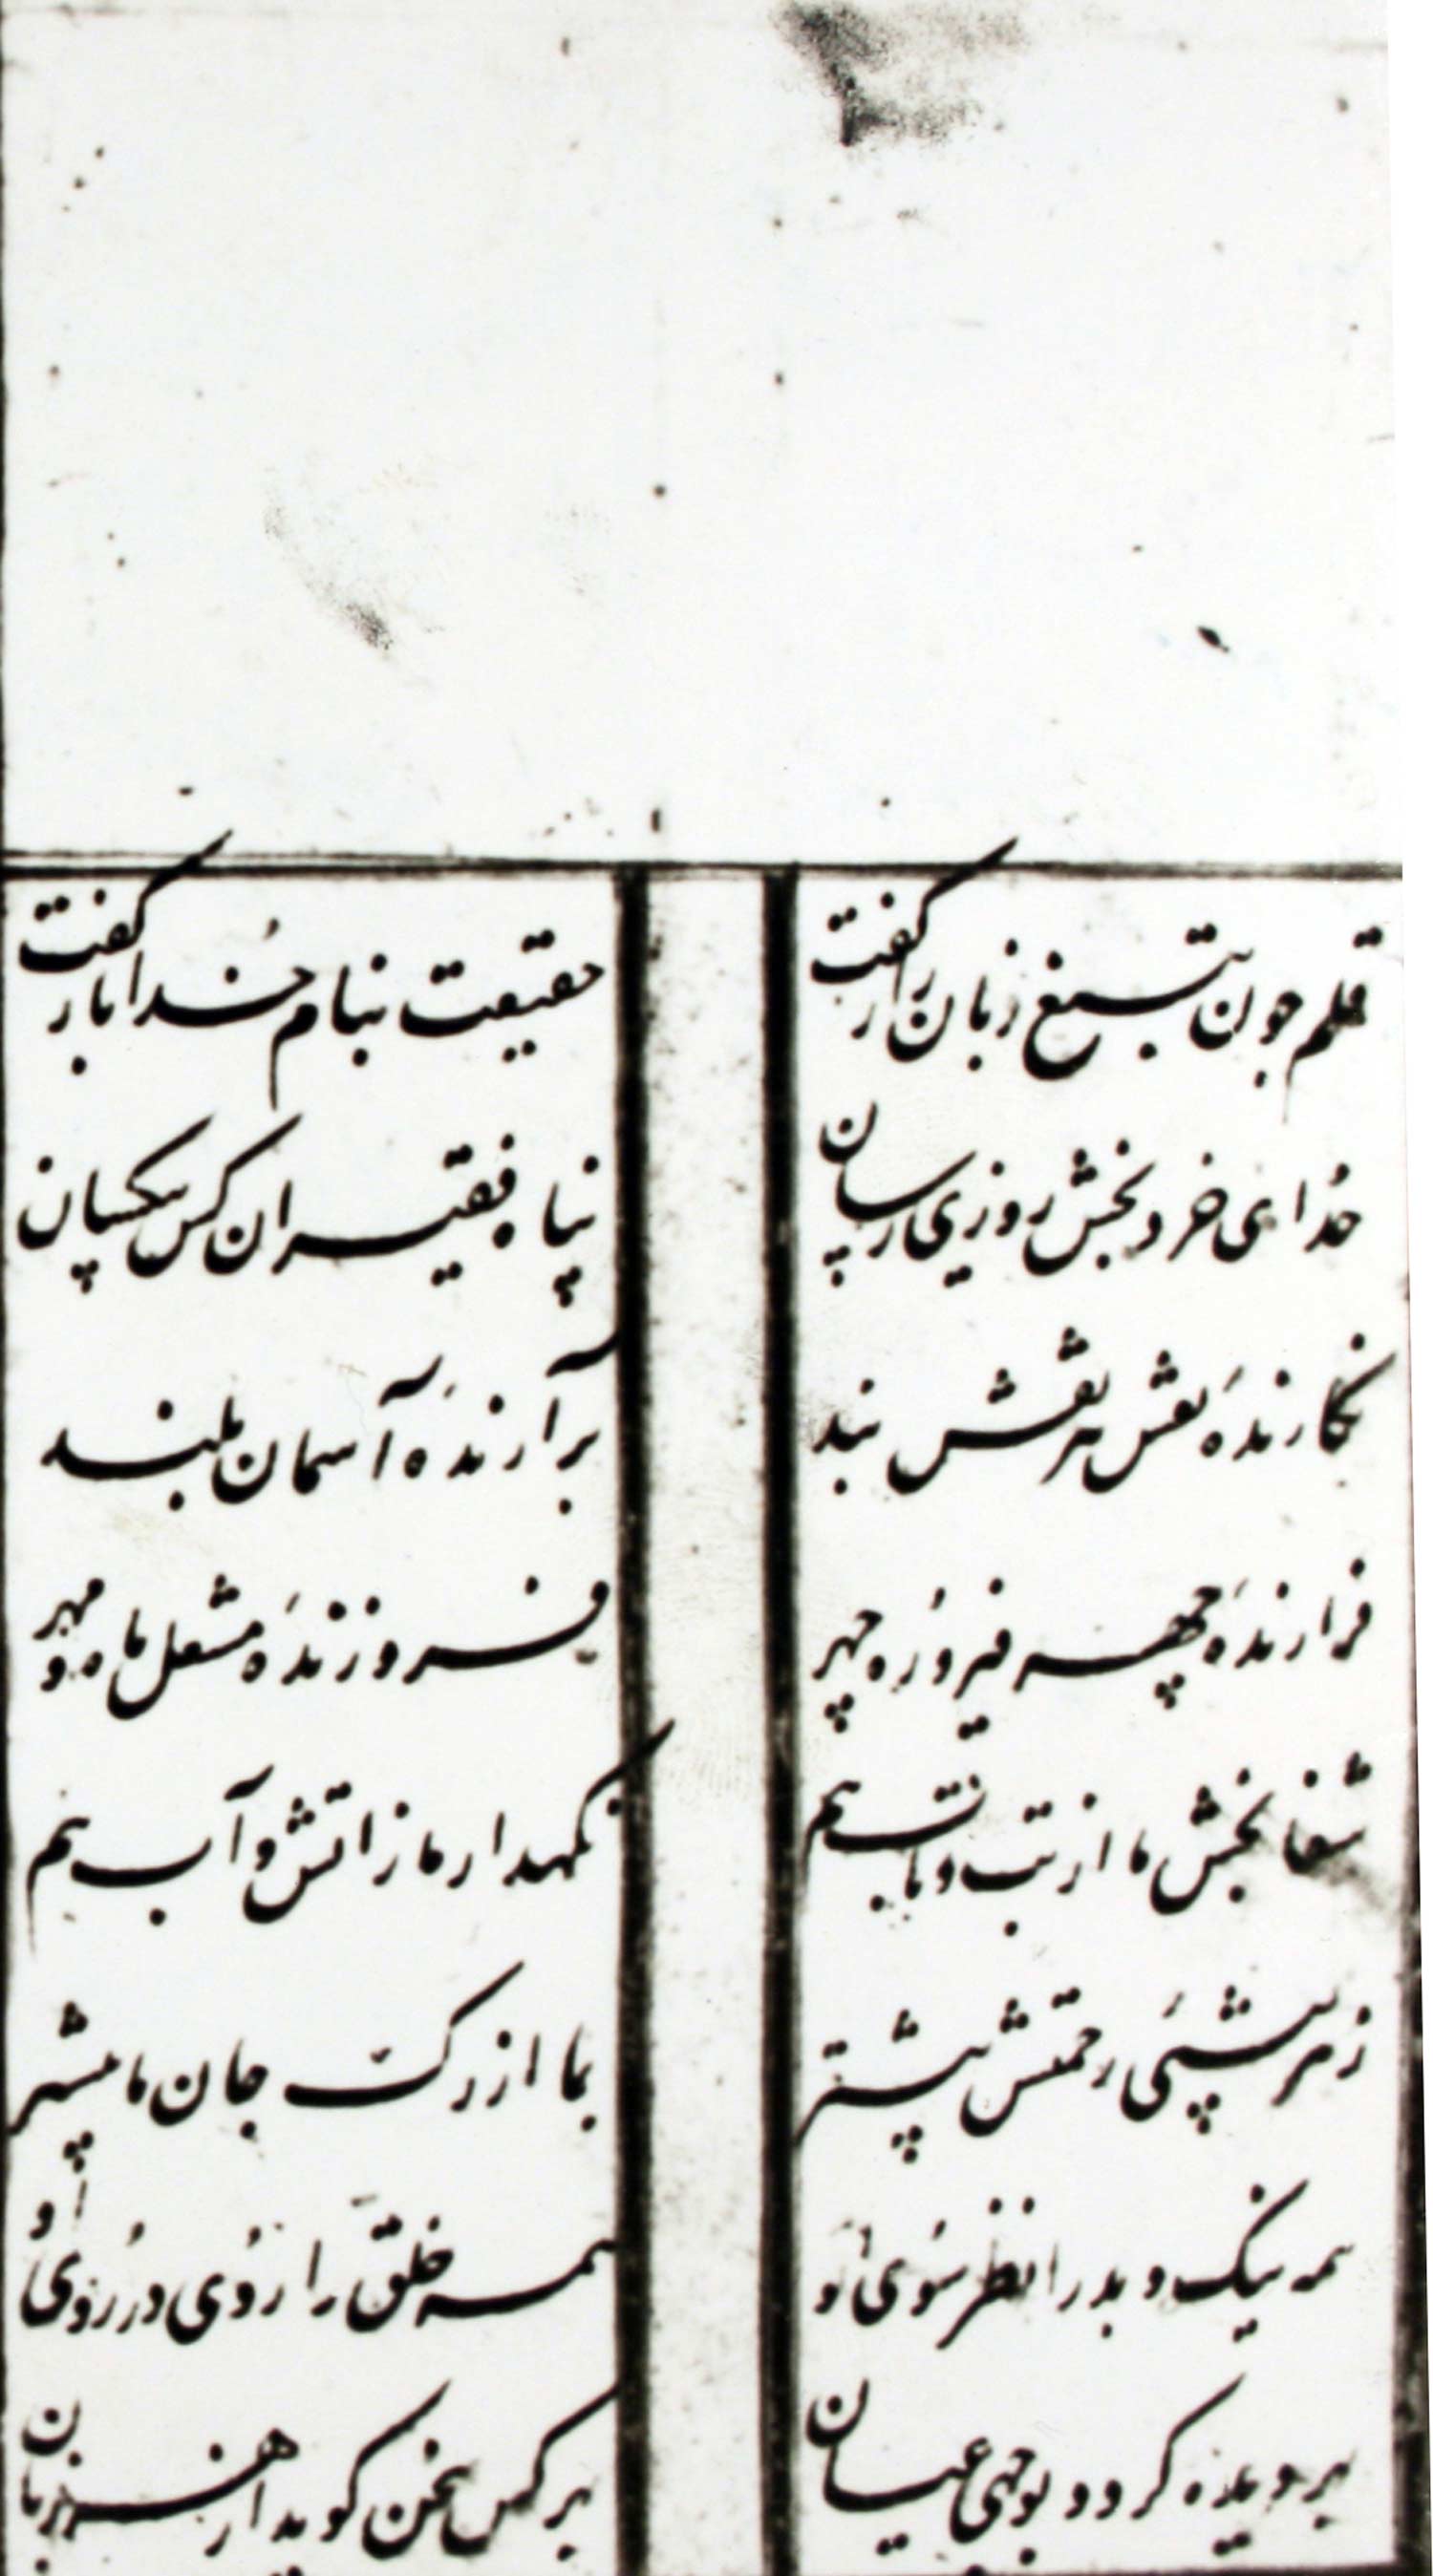 قلم چون بتیغ زبان راز گفت حقیقت بنام خدا باز گفت
خدای خرد بخش روزی رسان پناه فقیران کس بیکسان
نکارندهٔ نقش هر نقش بند برآرندهٔ آسمان بلند
فرازندهٔ چهر فیروزه چهر فروزندهٔ مشعل ماه و مهر
شفا بخش ما از تب و تاب هم نکهدار ما ز اتش و آب هم
ز هر پیشیی رحمتش پیشتر بما از رک جان ما پیشتر
همه نیک و بد را نظر سوی او همه خلق را روی در روی او
بهر دیده کردد بوجهی عیان بهر کس سخن کوید از هر زبان